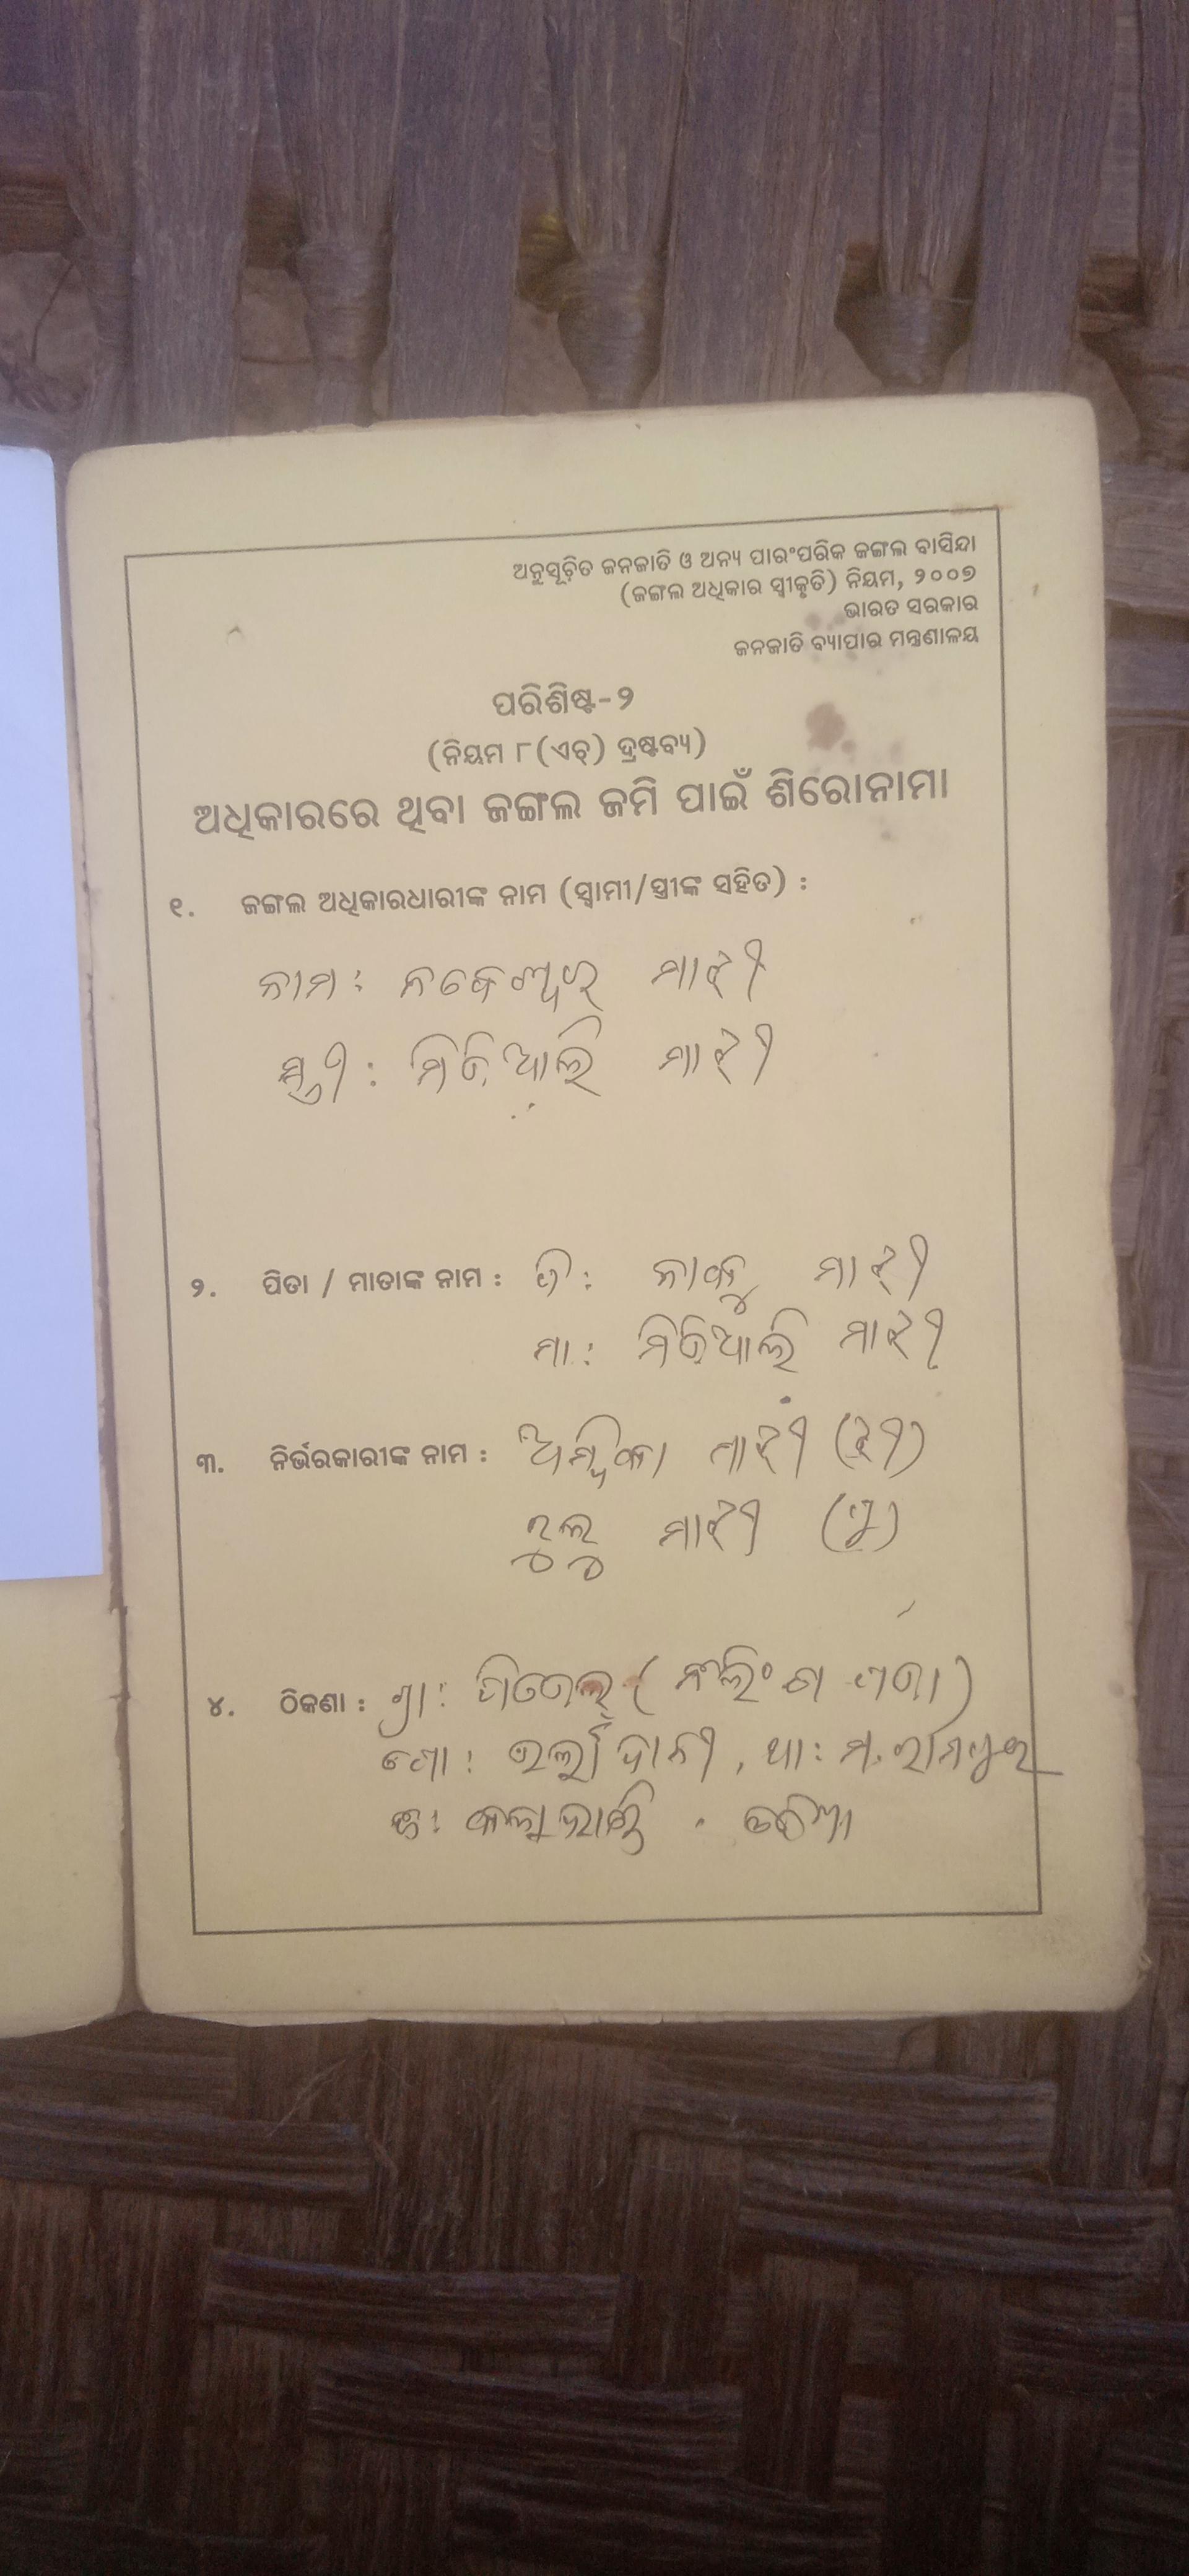 ଅନୁସୂଚିତ ଜନଜାତି ଓ ଅନ୍ୟ ପାରଂପରିକ ଜଙ୍ଗଲ ବାସିନ୍ଦା
(ଜଙ୍ଗଲ ଅଧିକାର ସ୍ୱୀକୃତି) ନିୟମ, ୨୦୦୭
ଭାରତ ସରକାର
ଜନଜାତି ବ୍ୟାପାର ମନ୍ତ୍ରଣାଳୟ
ପରିଶିଷ୍ଟ-୨
(ନିୟମ ୮(ଏଚ୍) ଦ୍ରଷ୍ଟବ୍ୟ)
ଅଧିକାରରେ ଥିବା ଜଙ୍ଗଲ ଜମି ପାଇଁ ଶିରୋନାମା
୧. ଜଙ୍ଗଲ ଅଧିକାରଧାରୀଙ୍କ ନାମ (ସ୍ୱାମୀ/ସ୍ତ୍ରୀଙ୍କ ସହିତ) :
ନାମ: ମାଝୀ
ସ୍ତ୍ରୀ: ମାଝୀ
୨. ପିତା / ମାତାଙ୍କ ନାମ : ପି: ମାଝୀ
ମା: ମାଝୀ
୩. ନିର୍ଭରକାରୀଙ୍କ ନାମ : ଅମ୍ବିକା ମାଝୀ (ଝୀ)
ମାଝୀ (ପୁ)
୪. ଠିକଣା : ଗ୍ରା:
ପୋ: , ଥା: ମ. ରାମପୁର
ଜି: କଳାହାଣ୍ଡି . ଓଡିଶା